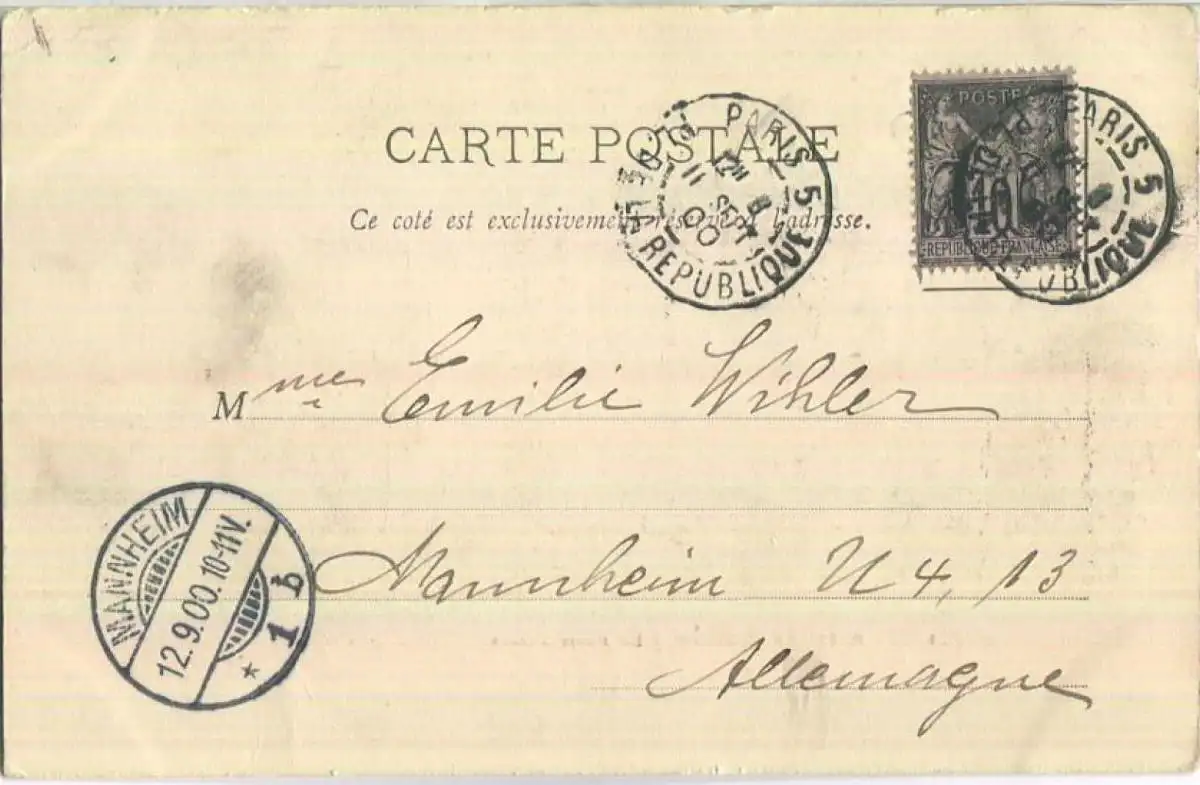 CARTE POSTALE
Ce coté est exclusivement réservé à l'adresse.
PARIS 5
PL. DE LA REPUBLIQUE
11 SEPT
00
POSTE
10
REPUBLIQUE FRANÇAISE
PARIS 5
Mme Emilie Wihler
MANNHEIM
12.9.00.10-11V.
* 1 b
Mannheim U 4, 13
Allemagne